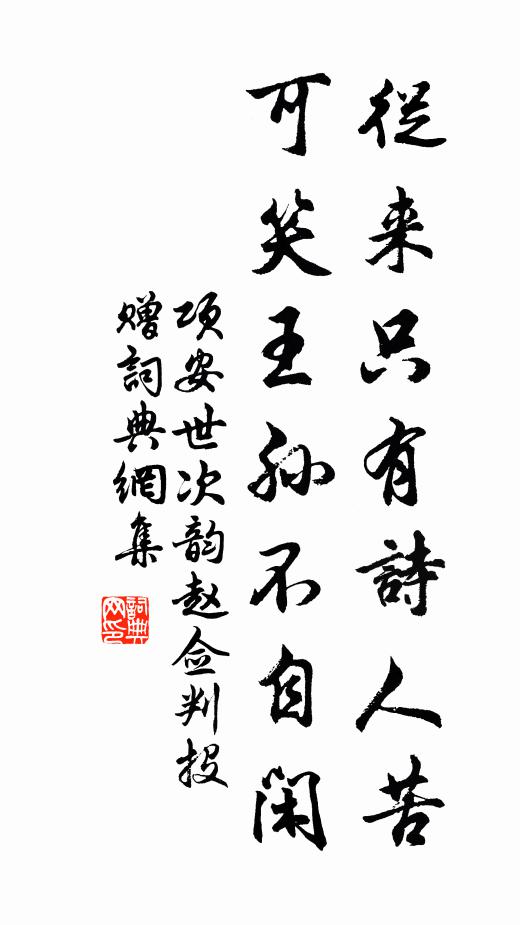 從来只有詩人苦
可笑王孙不自闲
项安世次韵赵佥判投
赠詞典網集
詞典
网印